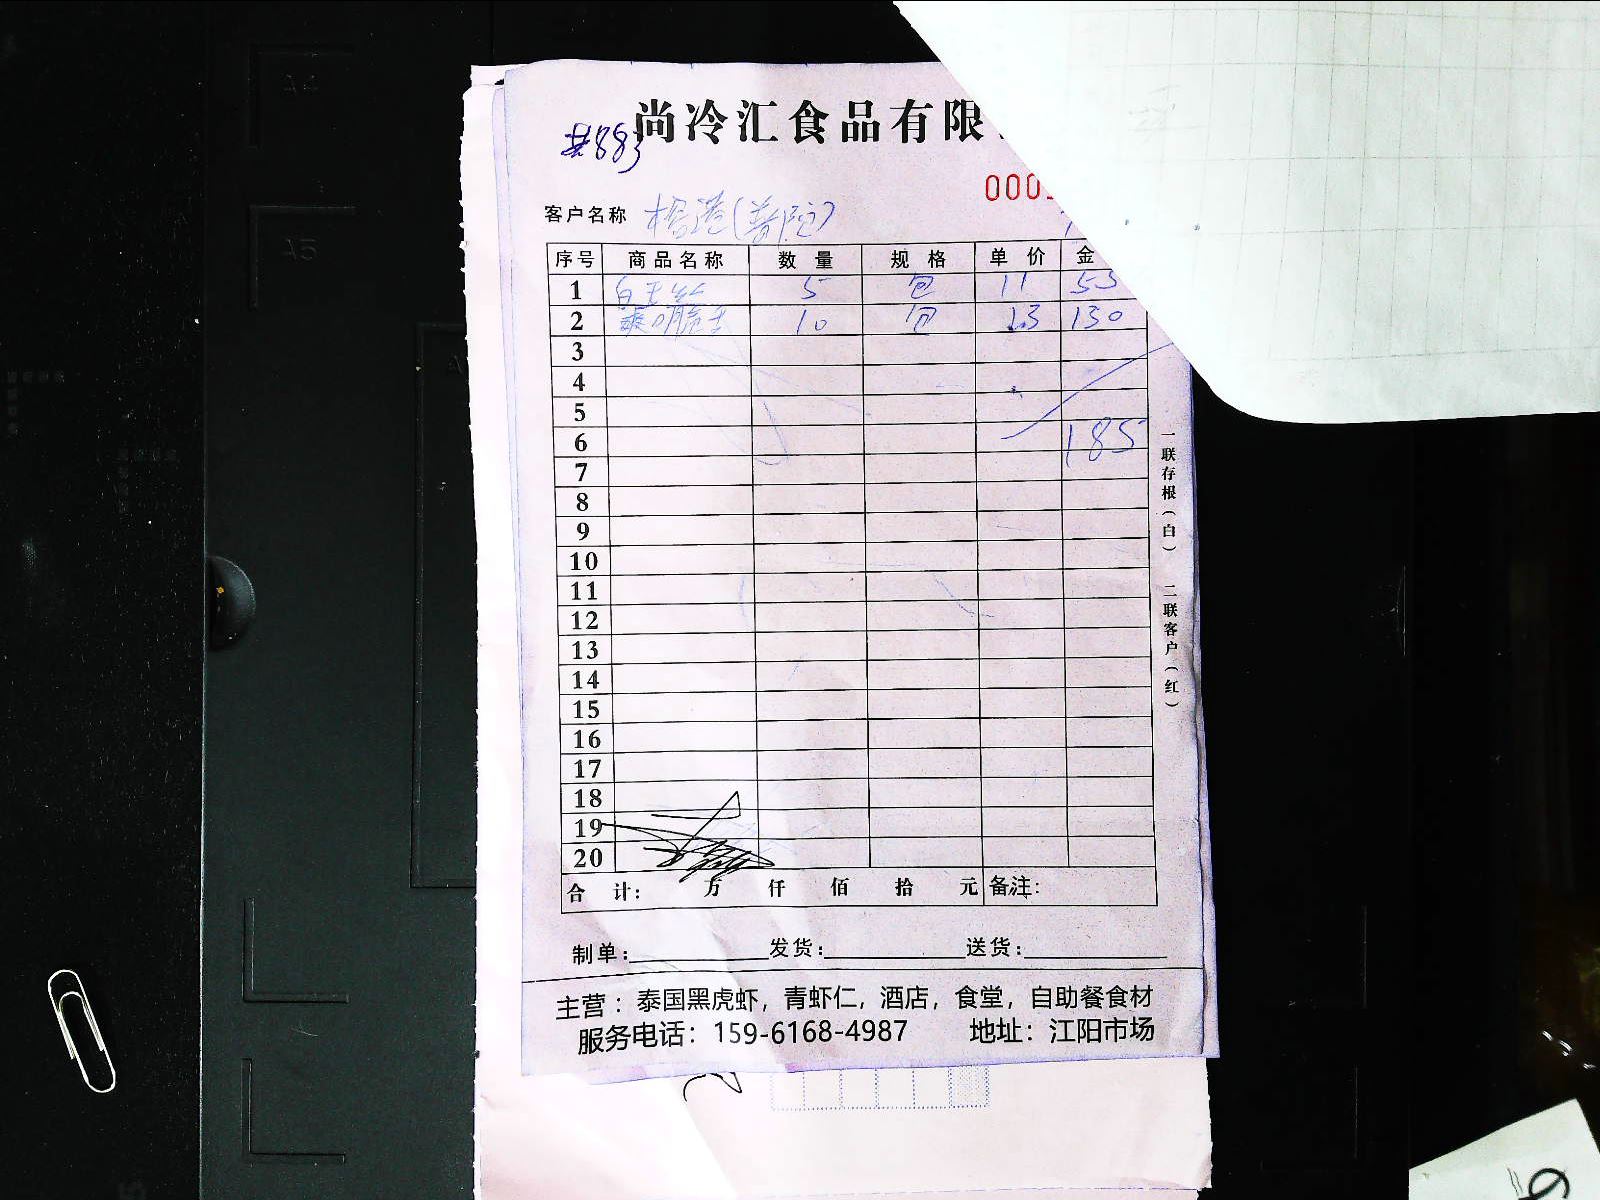 尚冷汇食品有限
#883
000
客户名称
序号 商品名称 数量 规格 单价 金
1 白玉 5 包 11 55
2 爽口脆 10 包 13 130
3
4
5
6 185
7
8
9
10
11
12
13
14
15
16
17
18
19
20
合计: 万 仟 佰 拾 元 备注:
一联存根(白) 二联客户(红)
制单: 发货: 送货:
主营：泰国黑虎虾，青虾仁，酒店，食堂，自助餐食材
服务电话：159-6168-4987 地址：江阳市场
A4
A5